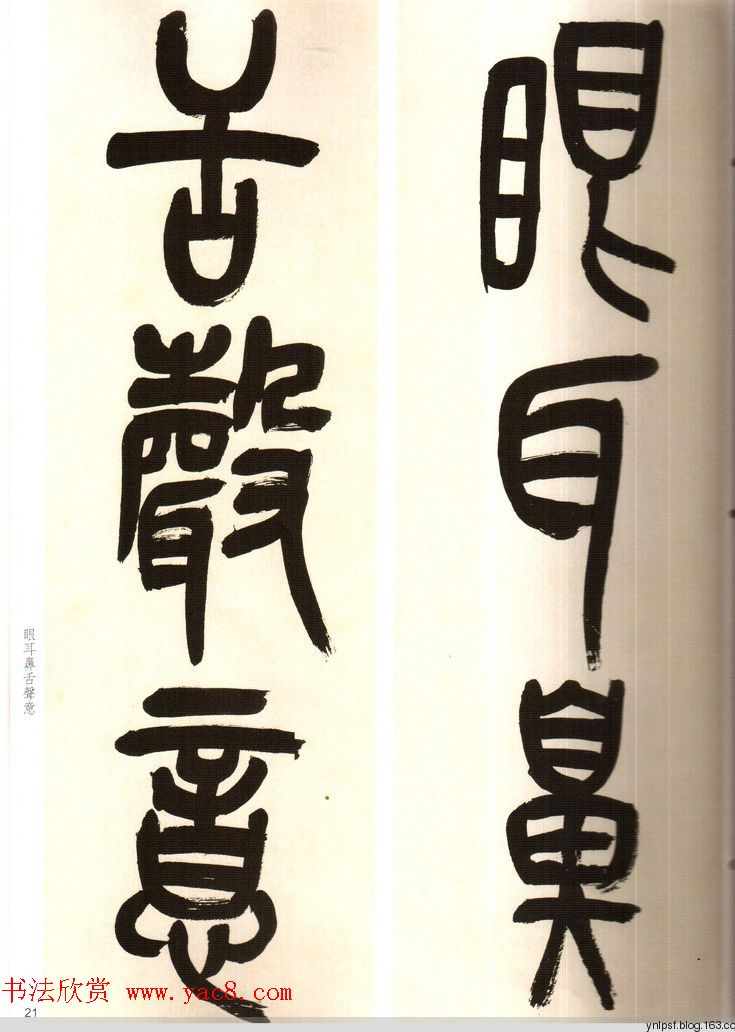 眼耳鼻
舌聲意
眼耳鼻舌聲意
书法欣赏 www.yac8.com
21
ynlpsf.blog.163.cc